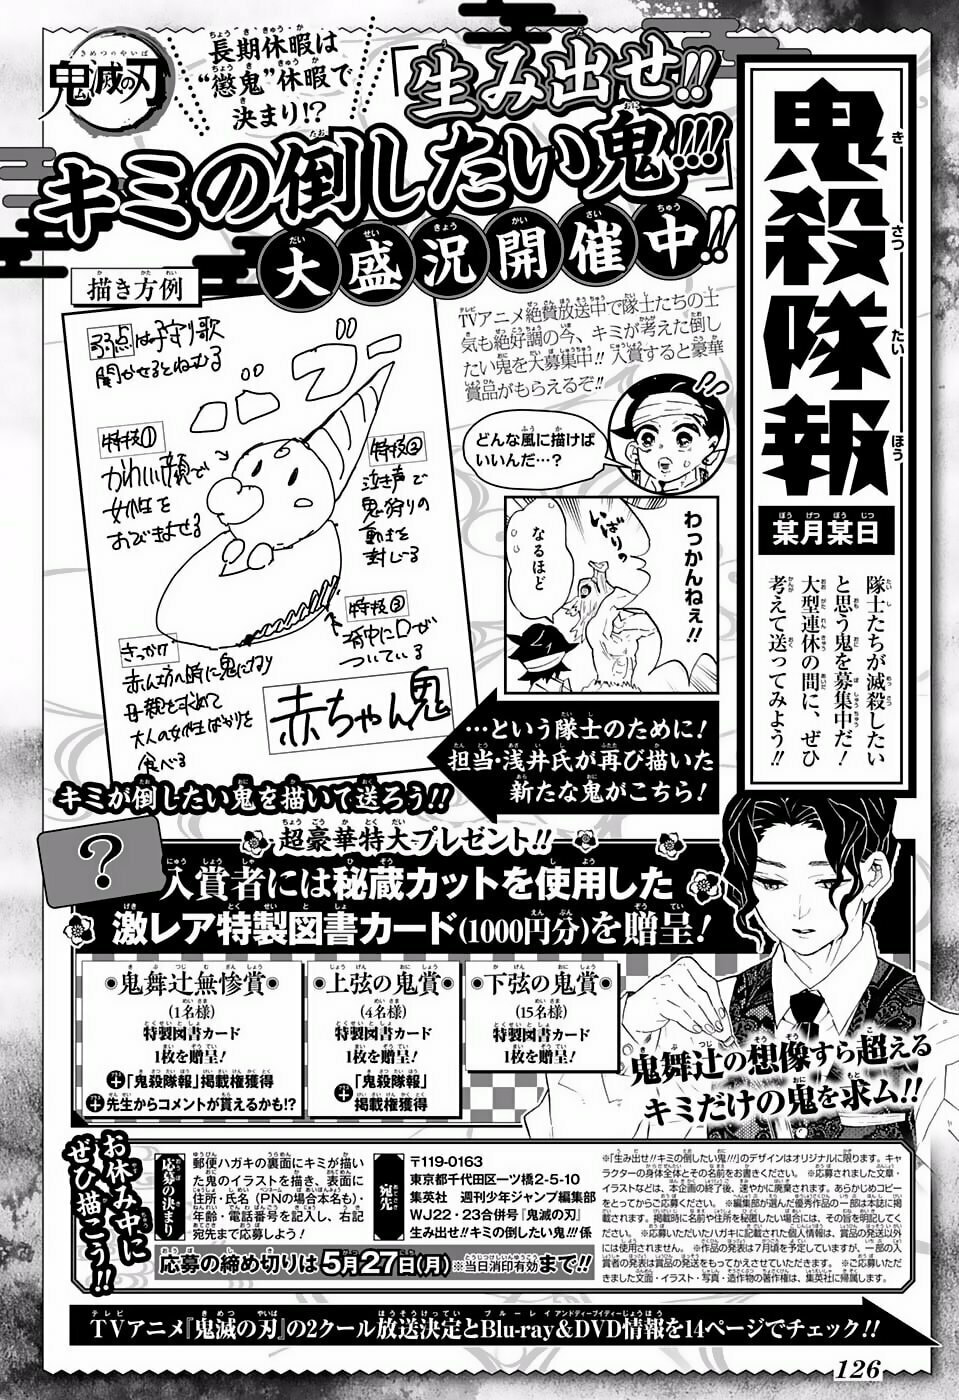 鬼滅の刃
長期休暇は
“懲鬼”休暇で
決まり!?
「生み出せ!!
キミの倒したい鬼!!!」
大盛況開催中!!
鬼殺隊報
某月某日
隊士たちが滅殺したい
と思う鬼を募集中だ!
大型連休の間に、ぜひ
考えて送ってみよう!!
TVアニメ絶賛放送中で隊士たちの士
気も絶好調の今、キミが考えた倒し
たい鬼を大募集中!! 入賞すると豪華
賞品がもらえるぞ!!
どんな風に描けば
いいんだ…?
わっかんねぇ!!
いばりの
なるほど
描き方例
弱点は子守り歌
聞かせるとねむる
特技①
かわいい顔で
女性を
おびきよせる
特技②
泣き声で
鬼狩りの
動きを
封じる
特技③
背中に口が
ついている
きっかけ
赤ん坊の時に鬼になり
母親を求めて
大人の女性ばかりを
食べる
赤ちゃん鬼
…という隊士のために!
担当・浅井氏が再び描いた
新たな鬼がこちら!
キミが倒したい鬼を描いて送ろう!!
超豪華特大プレゼント!!
?
入賞者には秘蔵カットを使用した
激レア特製図書カード(1000円分)を贈呈!
鬼舞辻無惨賞
(1名様)
特製図書カード
1枚を贈呈!
+「鬼殺隊報」掲載権獲得
+先生からコメントが貰えるかも!?
上弦の鬼賞
(4名様)
特製図書カード
1枚を贈呈!
+「鬼殺隊報」
掲載権獲得
下弦の鬼賞
(15名様)
特製図書カード
1枚を贈呈!
鬼舞辻の想像すら超える
キミだけの鬼を求ム!!
お休み中に
ぜひ描こう!!
応募の決まり
郵便ハガキの裏面にキミが描い
た鬼のイラストを描き、表面に
住所・氏名(PNの場合本名も)・
年齢・電話番号を記入し、右記
宛先まで応募しよう!
宛先
〒119-0163
東京都千代田区一ツ橋2-5-10
集英社 週刊少年ジャンプ編集部
WJ22・23合併号『鬼滅の刃』
生み出せ!!キミの倒したい鬼!!!係
応募の締め切りは5月27日(月)※当日消印有効まで!!
※「生み出せ!!キミの倒したい鬼!!!」のデザインはオリジナルに限ります。キャ
ラクターの身体全体とその名前をお書きください。※応募されました文章・
イラストなどは、本企画の終了後、速やかに廃棄されます。あらかじめコピー
をとってからご応募ください。※編集部が選んだ優秀作品の一部は本誌に掲
載されます。掲載時に名前や住所を秘匿したい場合には、その旨を明記してく
ださい。※ご応募いただきましたハガキに記載された個人情報は、賞品の発送以外
には使用されません。※作品の発表は7月頃を予定していますが、一部の入
賞者の発表は賞品の発送をもってかえさせていただきます。※ご応募いただ
きました文面・イラスト・写真・造作物の著作権は、集英社に帰属します。
TVアニメ『鬼滅の刃』の2クール放送決定とBlu-ray&DVD情報を14ページでチェック!!
126